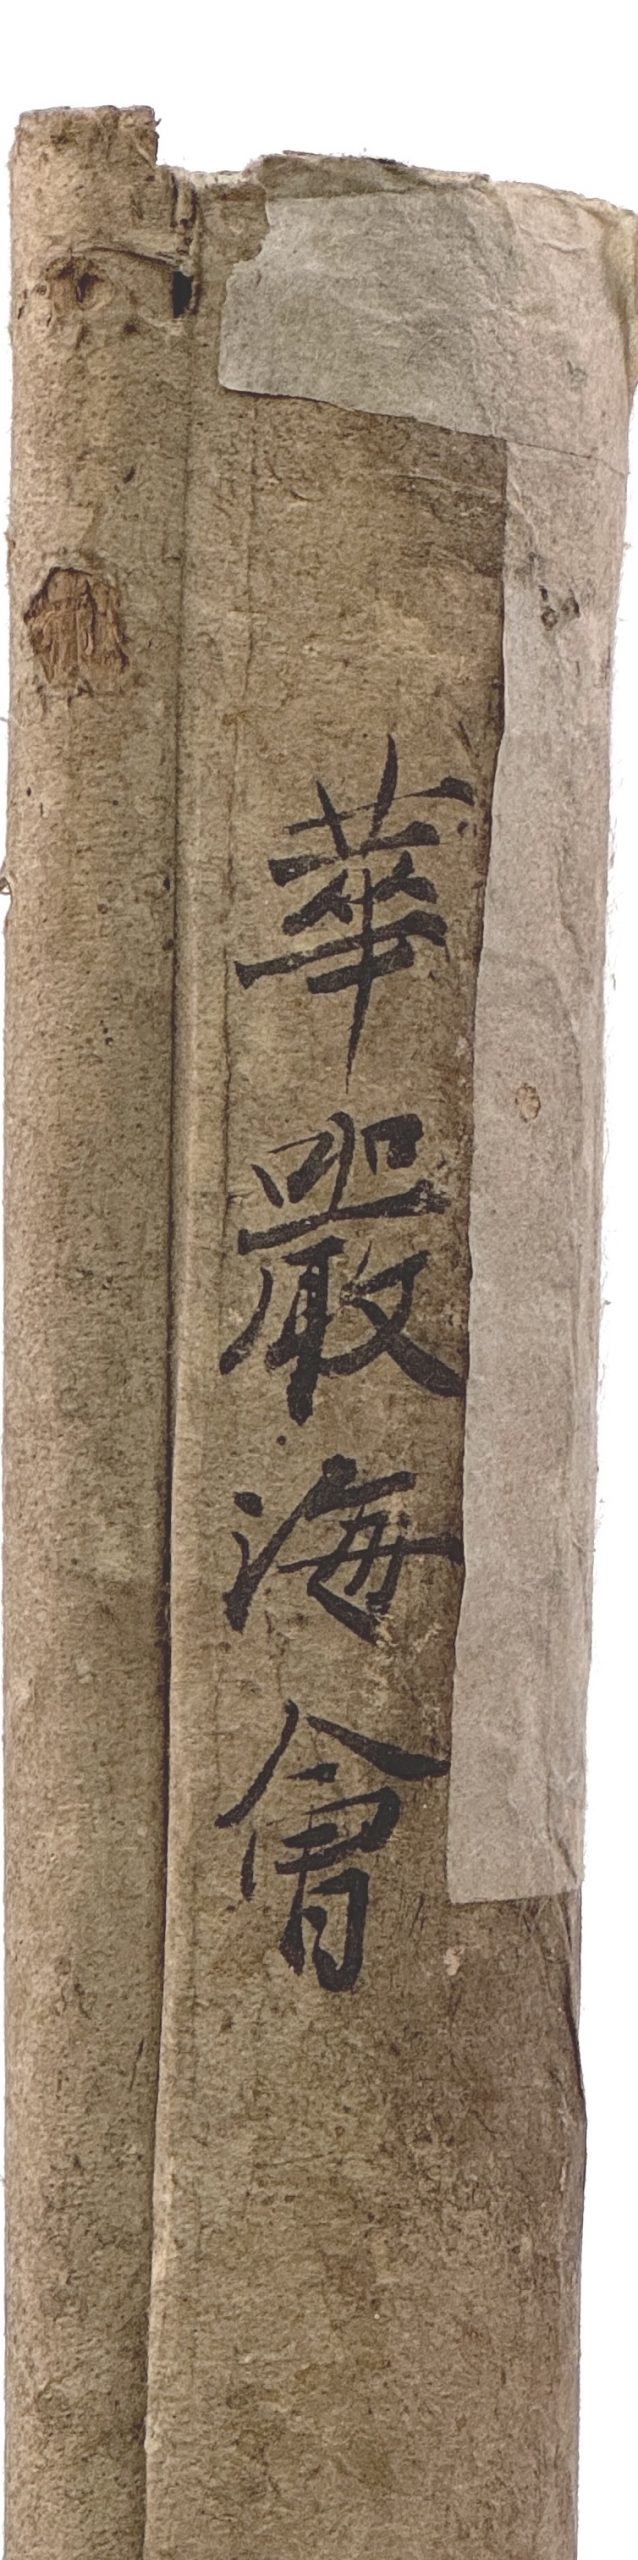 華嚴海會